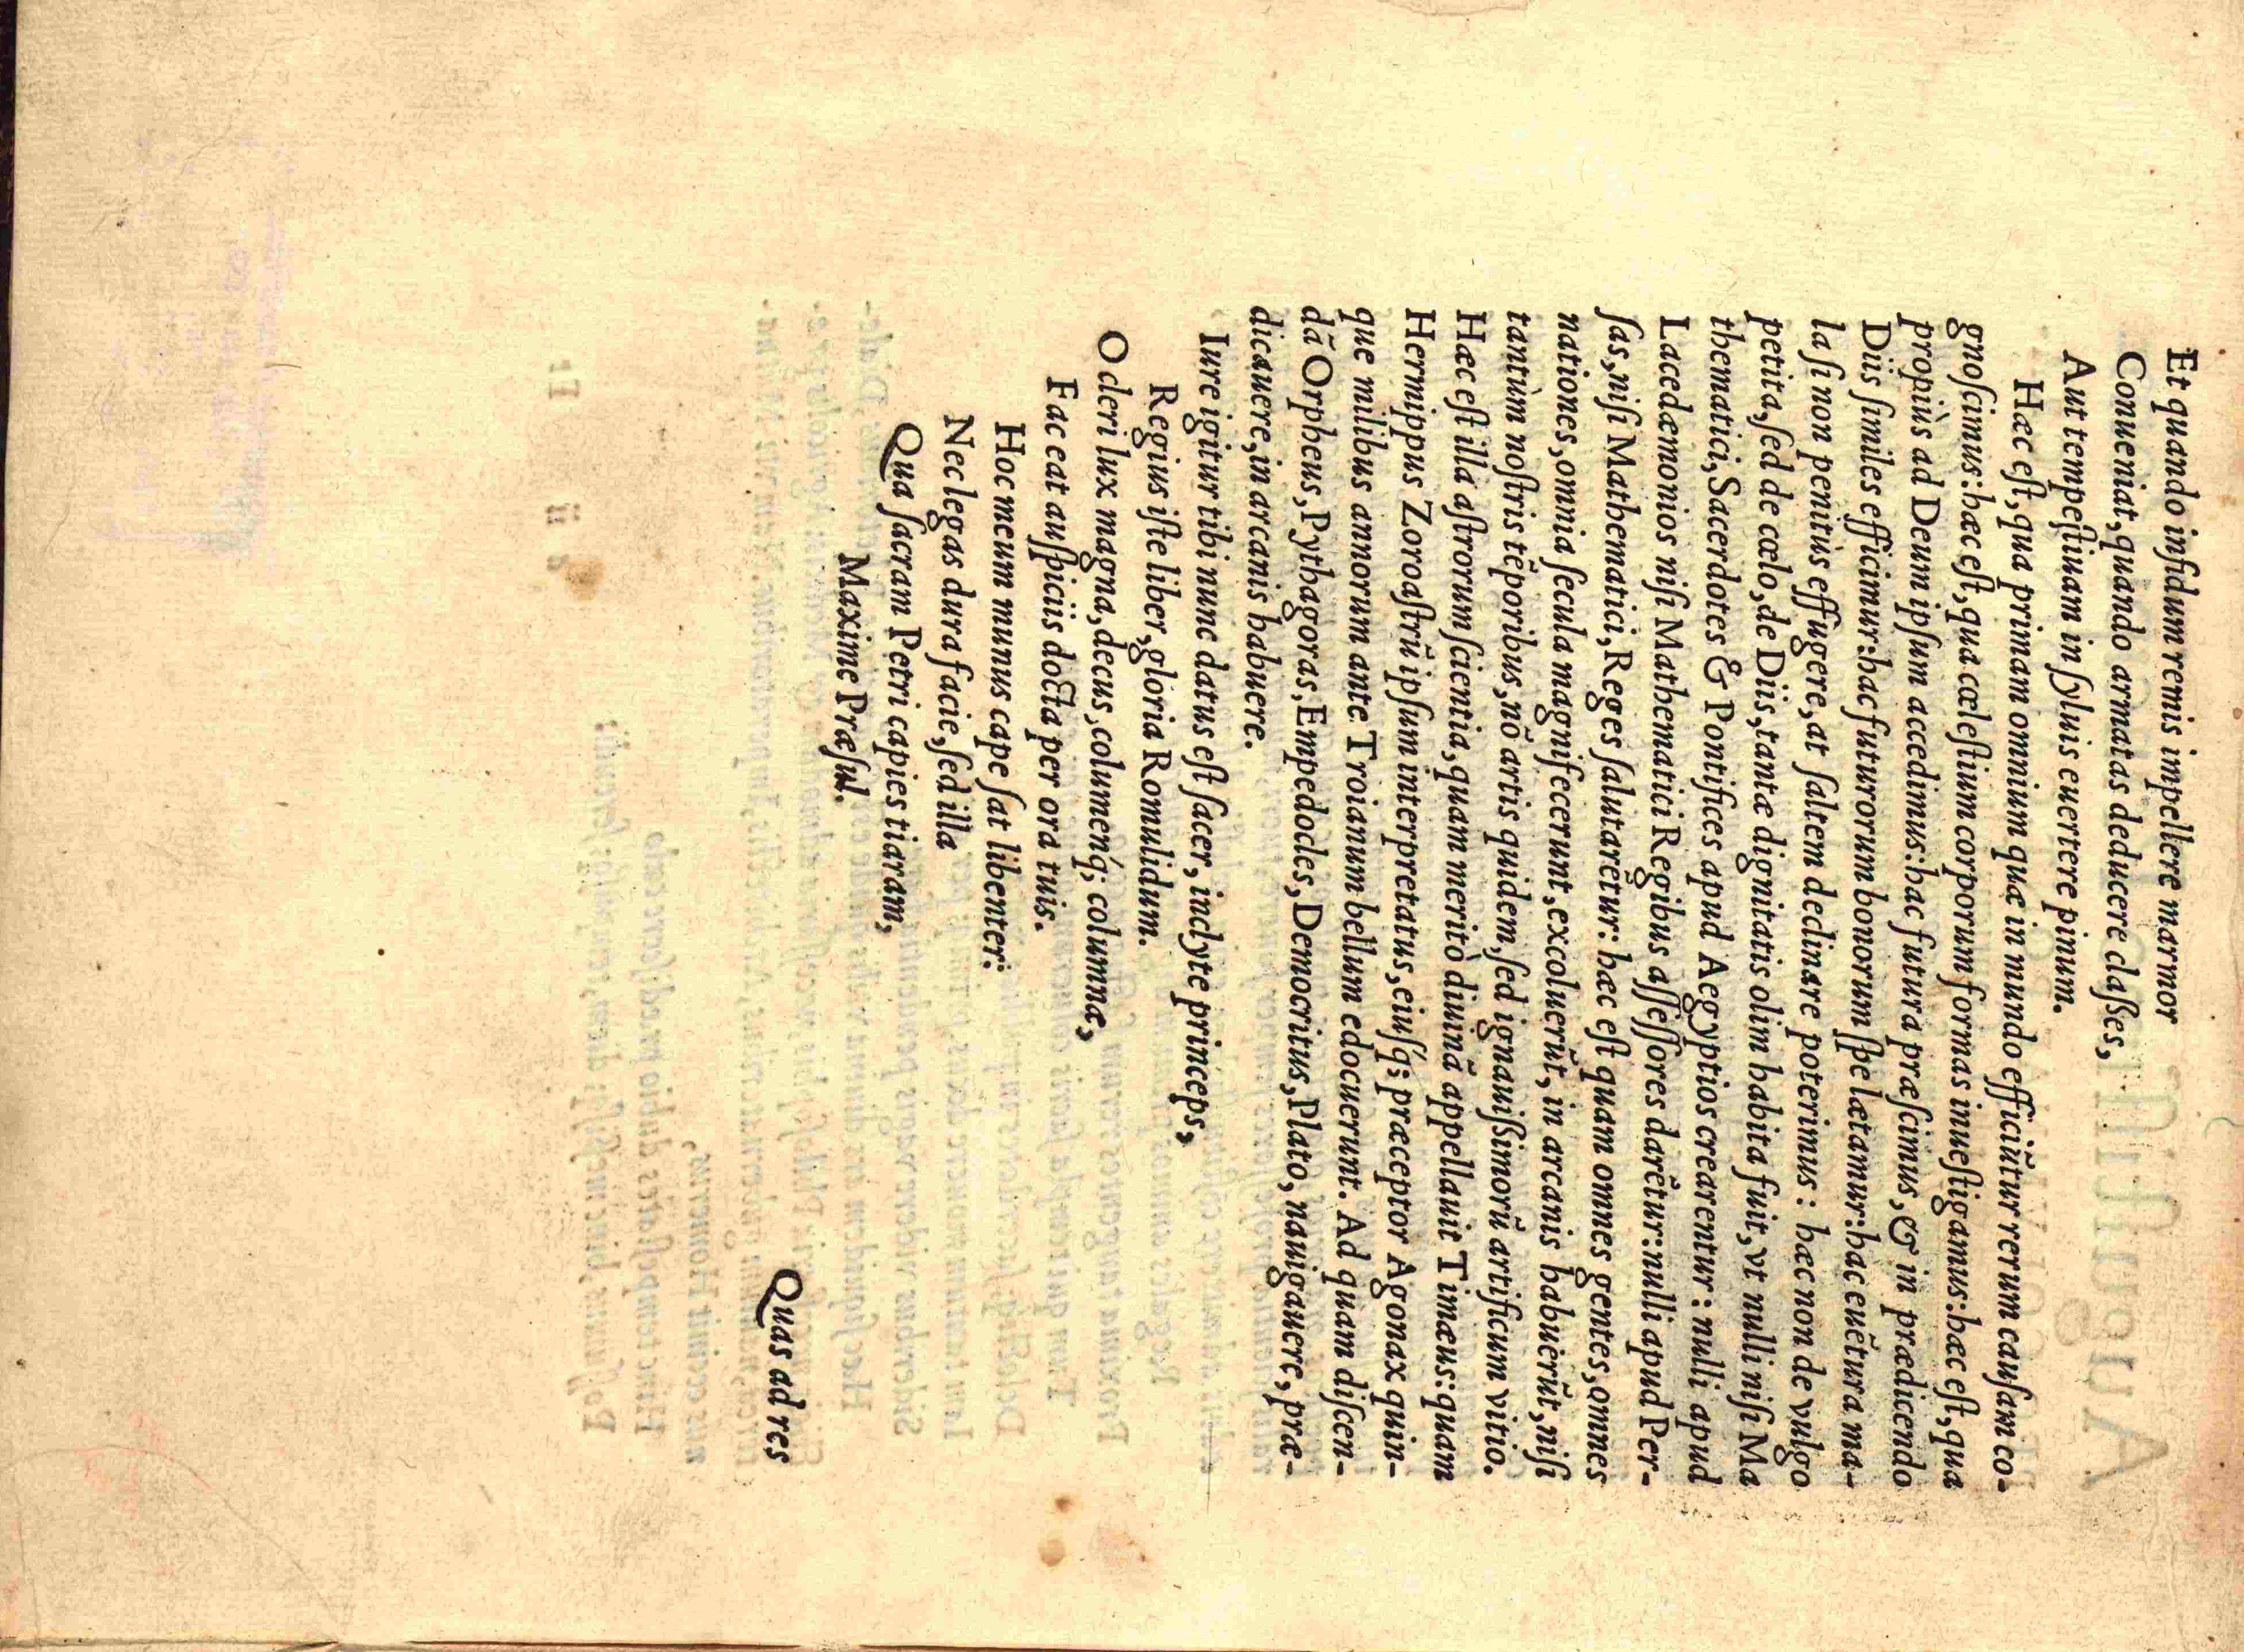 Et quando infidum remis impellere marmor
Conueniat, quando armatas deducere claſſes,
Aut tempeſtiuam in ſyluis euertere pinum.
Hæc eſt, qua primam omnium quæ in mundo efficiũtur rerum cauſam co-
gnoſcimus: hæc eſt, qua cœleſtium corporum formas inueſtigamus: hæc eſt, qua
propiùs ad Deum ipſum accedimus: hac futura præſcimus, & in prædicendo
Diis ſimiles efficimur: hac futurorum bonorum ſpe lætamur: hac euẽtura ma-
la ſi non penitùs effugere, at ſaltem declinare poterimus: hæc non de vulgo
petita, ſed de cœlo, de Diis, tantæ dignitatis olim habita fuit, vt nulli niſi Ma
thematici, Sacerdotes & Pontifices apud Aegyptios crearentur: nulli apud
Lacedæmonios niſi Mathematici Regibus aſſeſſores darẽtur: nulli apud Per-
ſas, niſi Mathematici, Reges ſalutarẽtur: hæc eſt quam omnes gentes, omnes
nationes, omnia ſecula magnifecerunt, excoluerũt, in arcanis habuerũt, niſi
tantùm noſtris tẽporibus, nõ artis quidem, ſed ignauiſsimorũ artificum vitio.
Hæc eſt illa aſtrorum ſcientia, quam meritò diuinã appellauit Timæus: quam
Hermippus Zoroaſtrũ ipſum interpretatus, eiuſq́; præceptor Agonax quin-
que milibus annorum ante Troianum bellum edocuerunt. Ad quam diſcen-
dã Orpheus, Pythagoras, Empedocles, Democritus, Plato, nauigauere, præ-
dicauere, in arcanis habuere.
Iure igitur tibi nunc datus eſt ſacer, inclyte princeps,
Regius iſte liber, gloria Romulidum.
O cleri lux magna, decus, columenq́; columnæ,
Fac eat auſpiciis docta per ora tuis.
Hoc meum munus cape ſat libenter:
Nec legas dura facie, ſed illa
Qua ſacram Petri capies tiaram,
Maxime Præſul.
Quas ad res